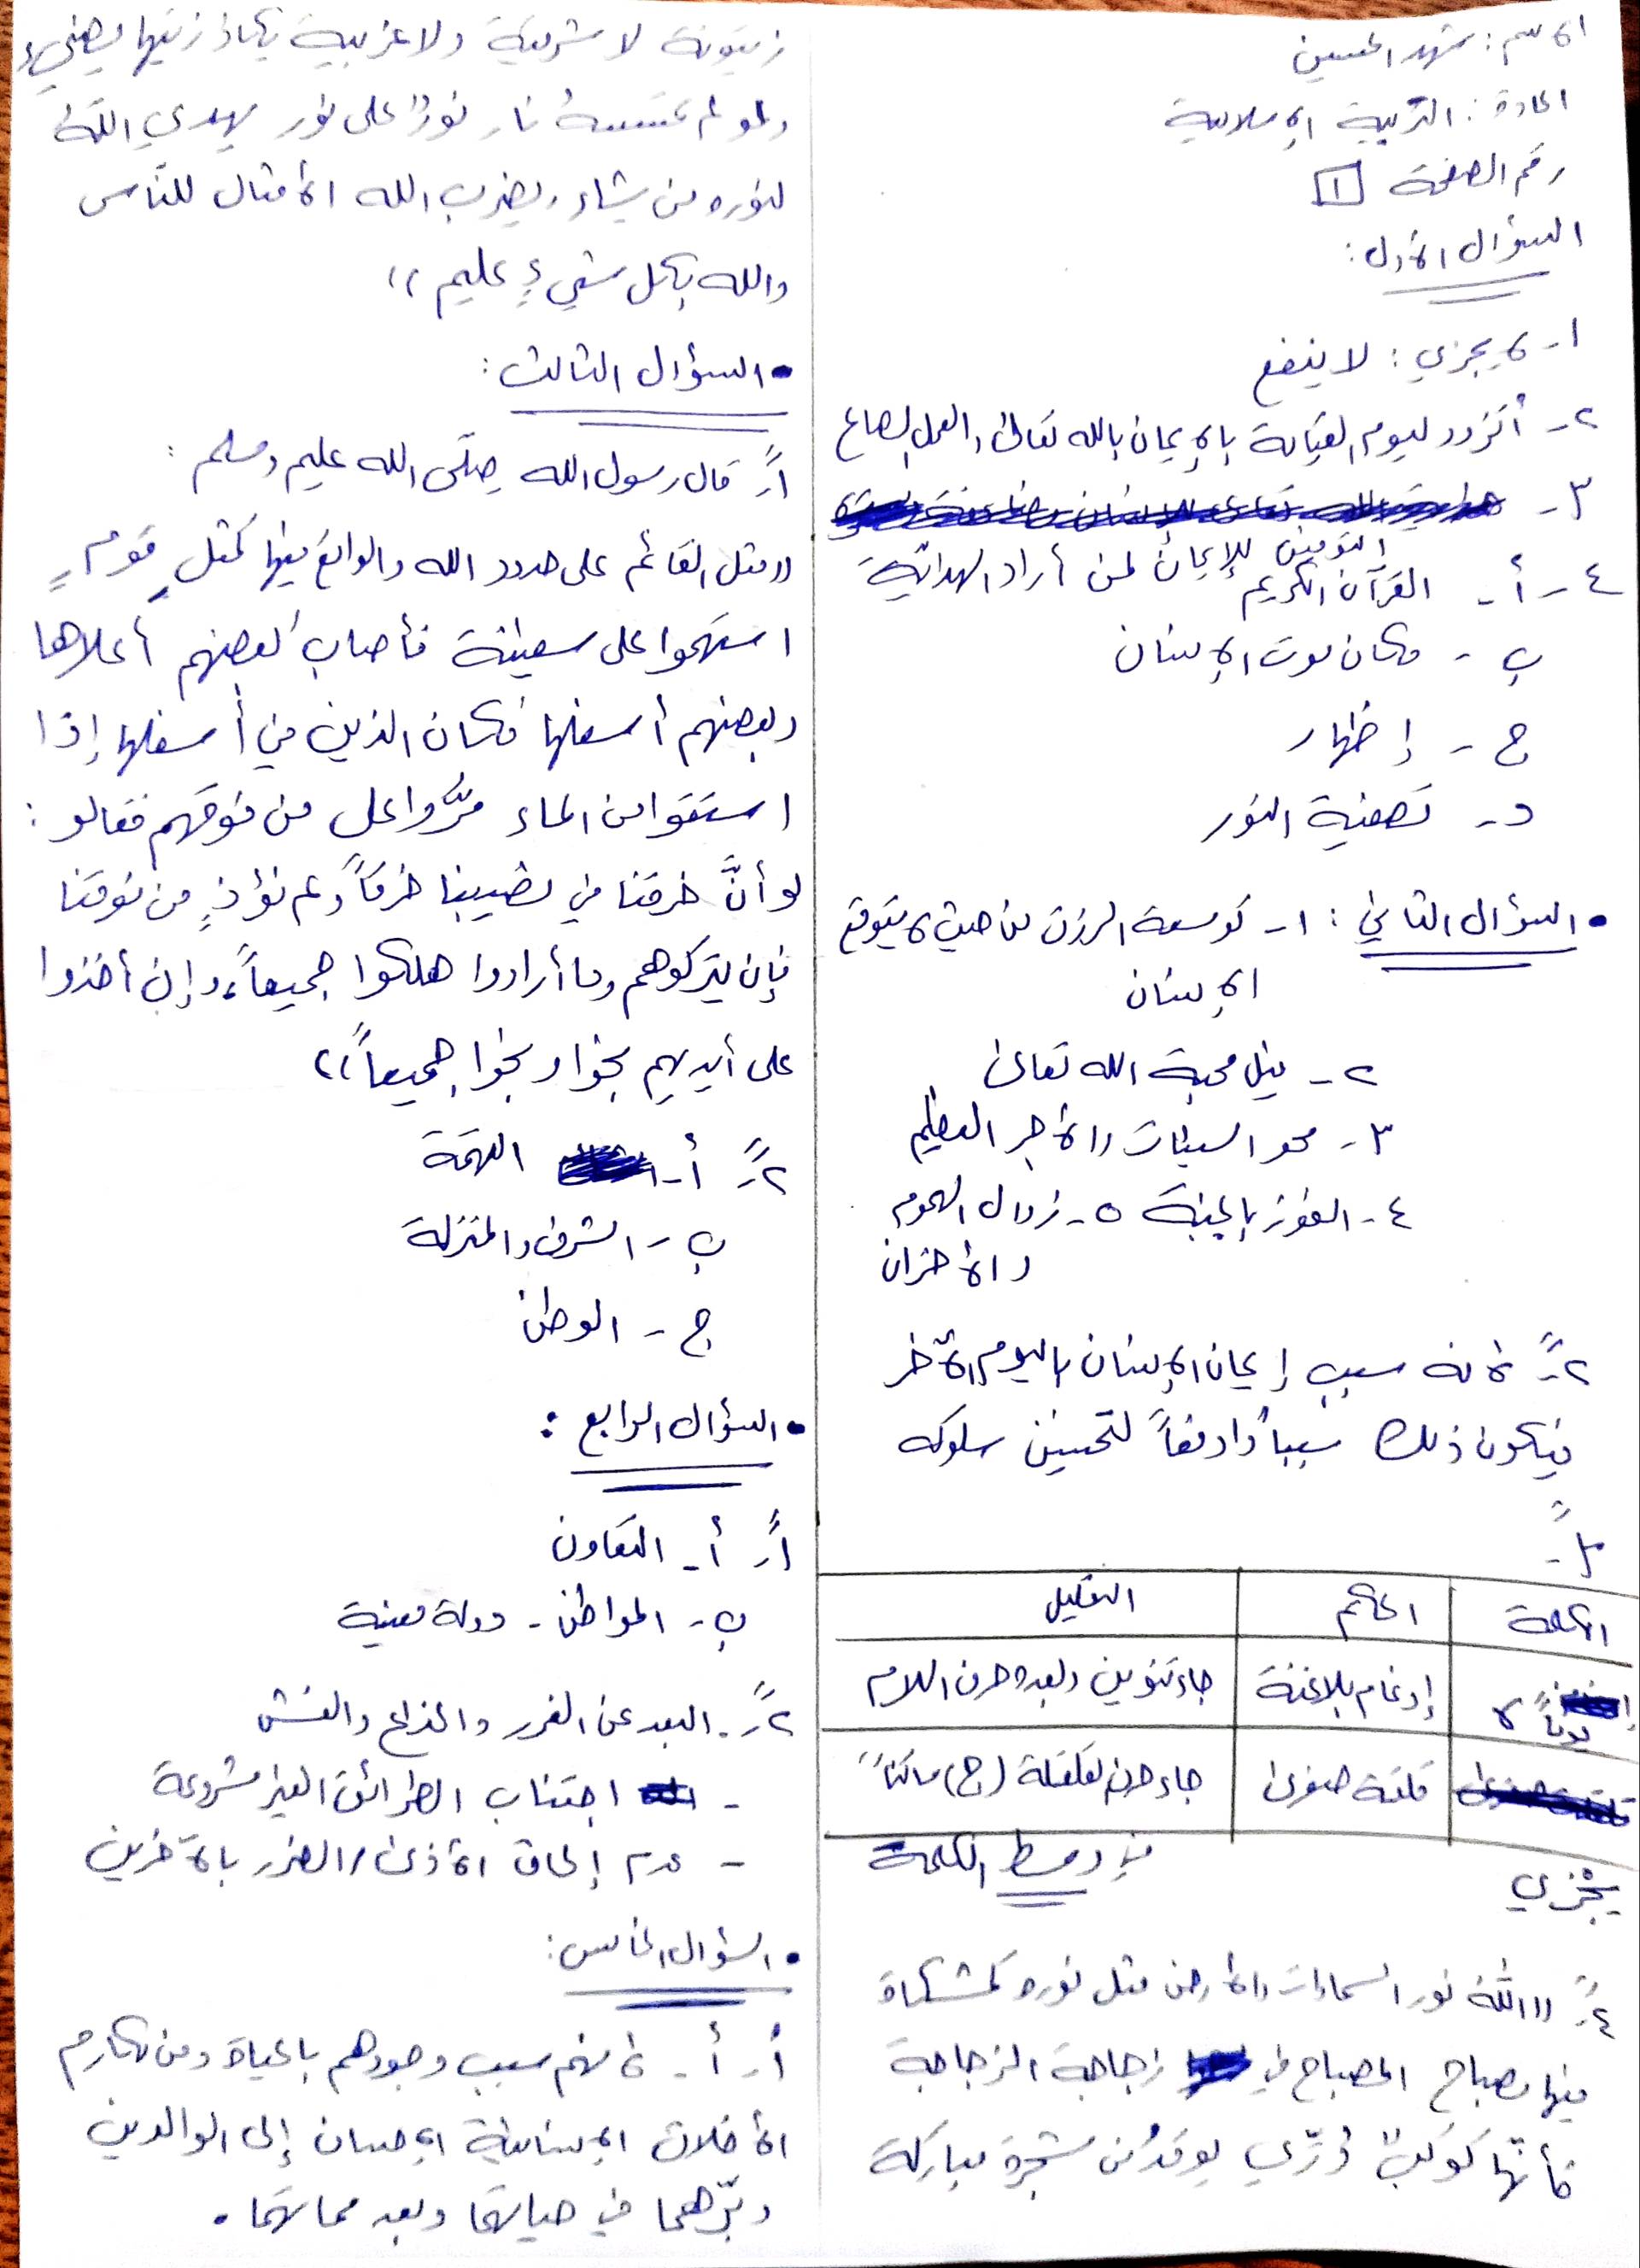 الاسم: شهد الحسين
المادة: التربية الإسلامية
رقم الصفحة ١
السؤال الأول:
١- لا يجزي: لا ينفع
٢- أتزود ليوم القيامة بالإيمان بالله تعالى والعمل الصالح
٣-
التوفيق للإيمان لمن أراد الهداية
٤- أ- القرآن الكريم
ب- مكان موت الإنسان
ج- إظهار
د- تصفية النور
• السؤال الثاني: ١- توسعة الرزق من حيث لا يتوقع
الإنسان
٢- نيل محبة الله تعالى
٣- محو السيئات والأجر العظيم
٤- الفوز بالجنة ٥- زوال الهموم
والأحزان
٢ً- لأنه سبب إيمان الإنسان باليوم الآخر
فيكون ذلك سبباً دافعاً لتحسين سلوكه
٣ً-
الكلمة الحكم التعليل
يوماً لا إدغام بلا غنة جاء تنوين وبعده حرف اللام
قلقة صغرى جاء حرف القلقلة (ج) ساكناً
في وسط الكلمة
يجْزي
٤ً- ((اللّهُ نور السماوات والأرض مثل نوره كمشكاة
فيها مصباح المصباح في زجاجة الزجاجة
كأنّها كوكبٌ دُرّي يوقدُ من شجرة مباركة
زيتونة لا شرقية ولا غربية يكاد زيتها يضيء
ولو لم تمسسهُ نار نورٌ على نور يهدي اللّهُ
لنوره من يشاء ويضرب الله الأمثال للنّاس
والله بكل شيءٍ عليم ))
• السؤال الثالث:
١ً- قال رسول الله صلّى الله عليه وسلم:
((مثل القائم على حدود الله والواقع فيها كمثلِ قومٍ
استهموا على سفينة فأصاب بعضهم أعلاها
وبعضهم أسفلها فكان الذين في أسفلها إذا
استقوا من الماء مرُّوا على من فوقهم فقالو:
لو أنَّ خرقنا في نصيبنا خرقاً ولم نؤذِ من فوقنا
فإن يتركوهم وما أرادوا هلكوا جميعاً، وإن أخذوا
على أيديهم نجوا ونجوا جميعاً))
٢ً- أ- التهمة
ب- الشرف والمنزلة
ج- الوطن
• السؤال الرابع:
١ً- أ- التعاون
ب- المواطن - دولة معينة
٢ً- البعد عن الغرر والخداع والغش
- اجتناب الطرائق الغير مشروعة
- عدم إلحاق الأذى والضرر بالآخرين
• السؤال الخامس:
١ً- أ- لأنهم سبب وجودهم بالحياة ومن مكارم
الأخلاق الإنسانية الإحسان إلى الوالدين
وبرّهما في حياتهما وبعد مماتهما.